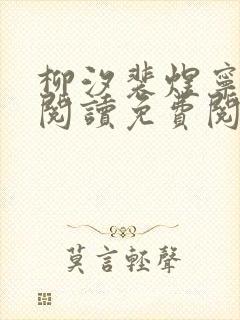 柳汐裴煜寧
閱讀免費閱
莫言輕聲